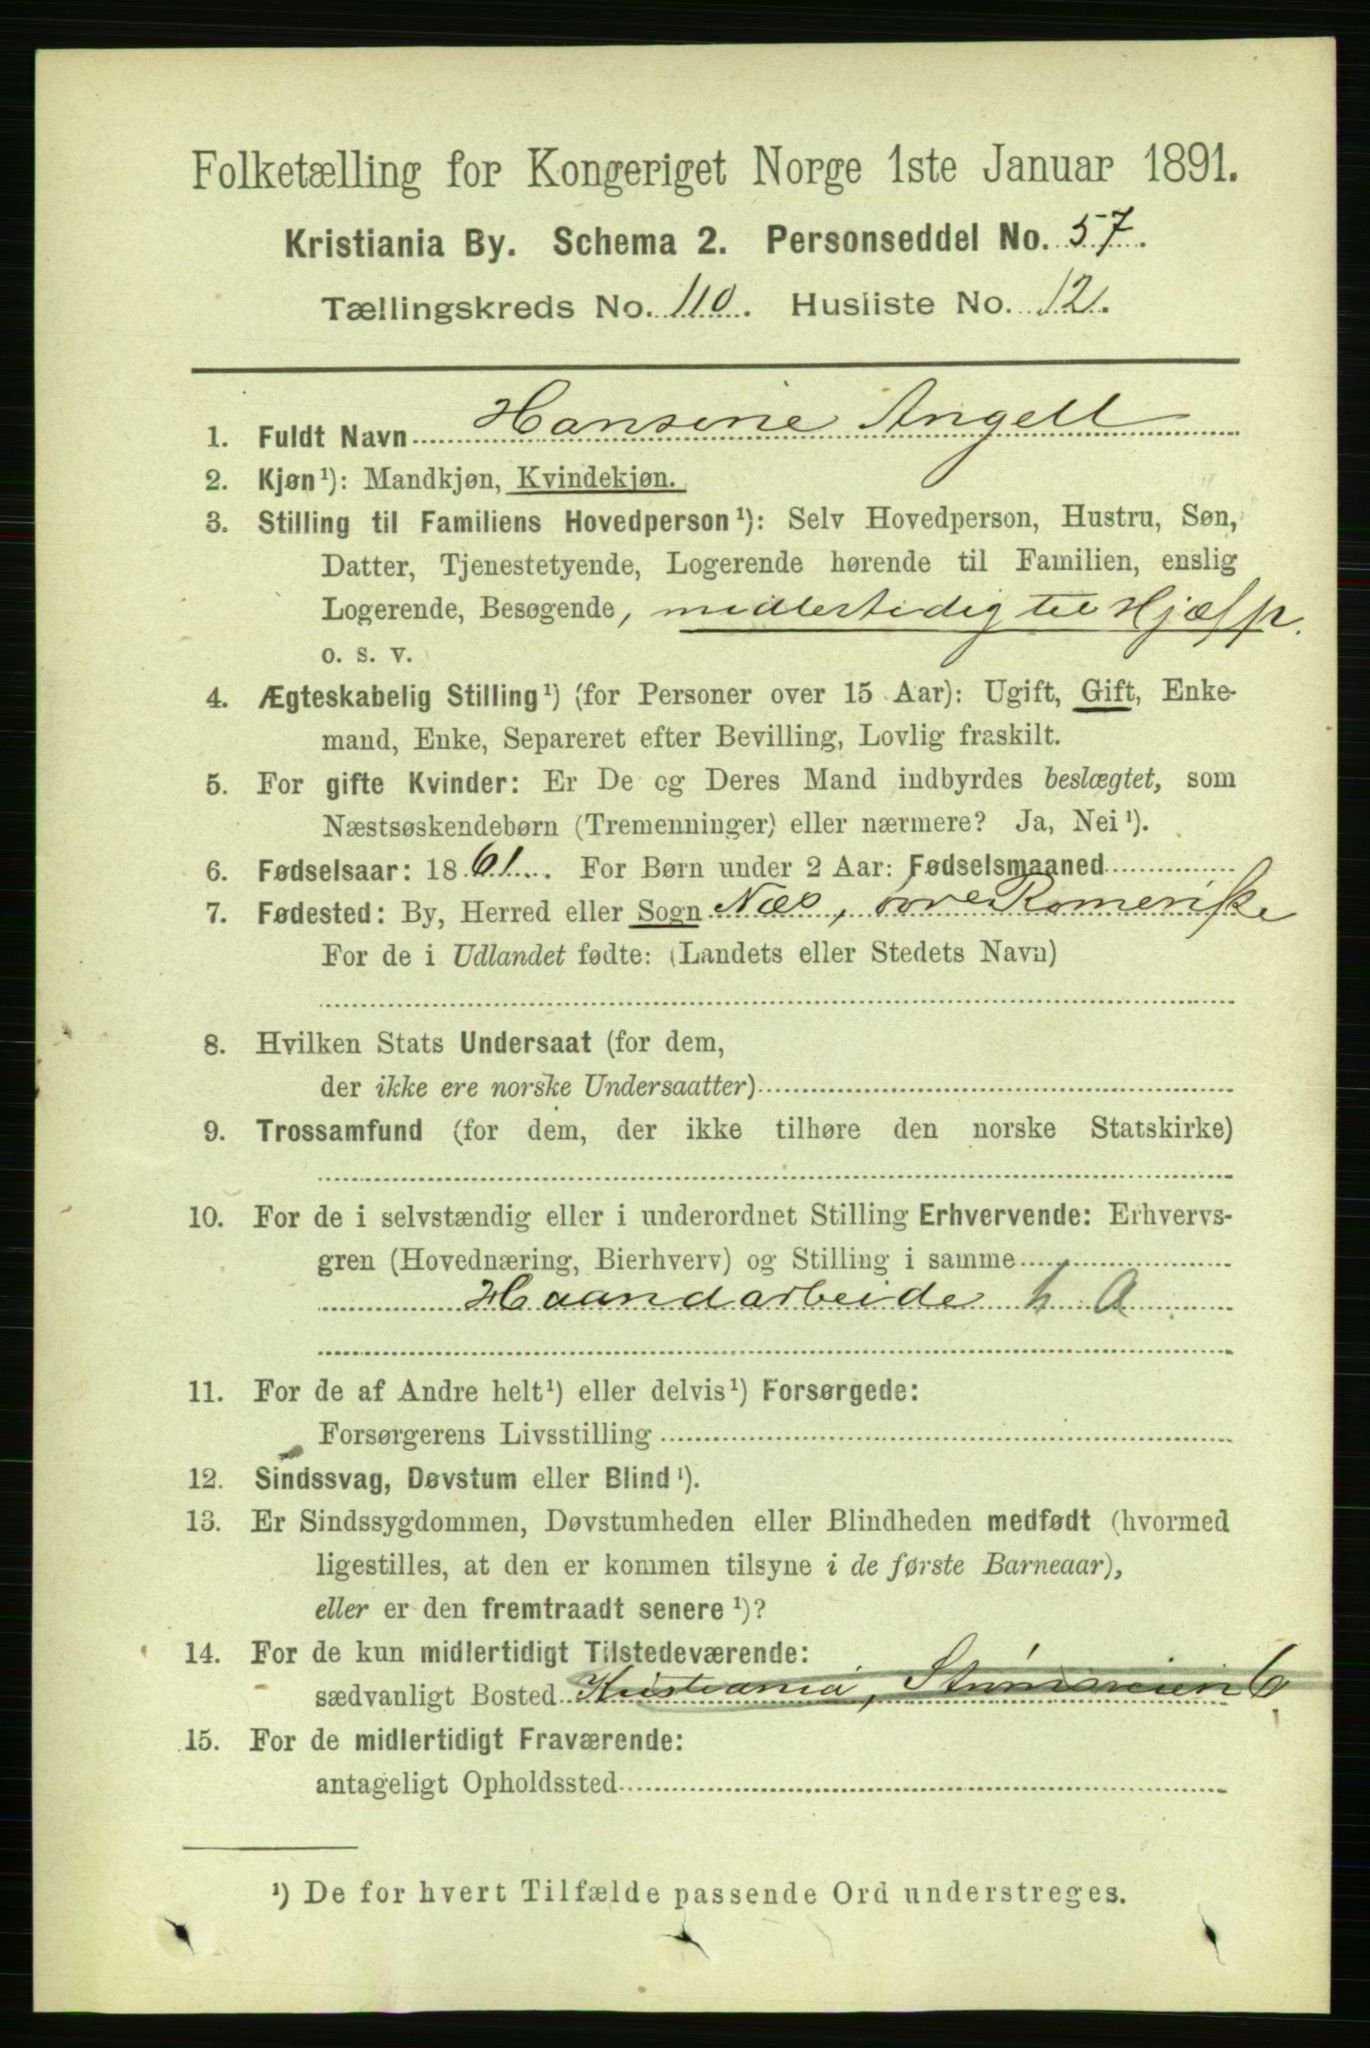 Folketælling for Kongeriget Norge 1ste Januar 1891.
Kristiania By. Schema 2. Personseddel No. 57.
Tællingskreds No. 110. Husliste No. 12.
1. Fuldt Navn Hansine Angell
2. Kjøn¹): Mandkjøn, Kvindekjøn.
3. Stilling til Familiens Hovedperson¹): Selv Hovedperson, Hustru, Søn,
Datter, Tjenestetyende, Logerende hørende til Familien, enslig
Logerende, Besøgende, midlertidig til Hjælp.
o. s. v.
4. Ægteskabelig Stilling¹) (for Personer over 15 Aar): Ugift, Gift, Enke-
mand, Enke, Separeret efter Bevilling, Lovlig fraskilt.
5. For gifte Kvinder: Er De og Deres Mand indbyrdes beslægtet, som
Næstsøskendebørn (Tremenninger) eller nærmere? Ja, Nei¹).
6. Fødselsaar: 1861. For Børn under 2 Aar: Fødselsmaaned
7. Fødested: By, Herred eller Sogn Næs, øvre Romerike
For de i Udlandet fødte: (Landets eller Stedets Navn)
8. Hvilken Stats Undersaat (for dem,
der ikke ere norske Undersaatter)
9. Trossamfund (for dem, der ikke tilhøre den norske Statskirke)
10. For de i selvstændig eller i underordnet Stilling Erhvervende: Erhvervs-
gren (Hovednæring, Bierhverv) og Stilling i samme
Haandarbeide h A
11. For de af Andre helt¹) eller delvis¹) Forsørgede:
Forsørgerens Livsstilling
12. Sindssvag, Døvstum eller Blind¹).
13. Er Sindssygdommen, Døvstumheden eller Blindheden medfødt (hvormed
ligestilles, at den er kommen tilsyne i de første Barneaar),
eller er den fremtraadt senere¹)?
14. For de kun midlertidigt Tilstedeværende:
sædvanligt Bosted Kristiania, 6
15. For de midlertidigt Fraværende:
antageligt Opholdssted
¹) De for hvert Tilfælde passende Ord understreges.